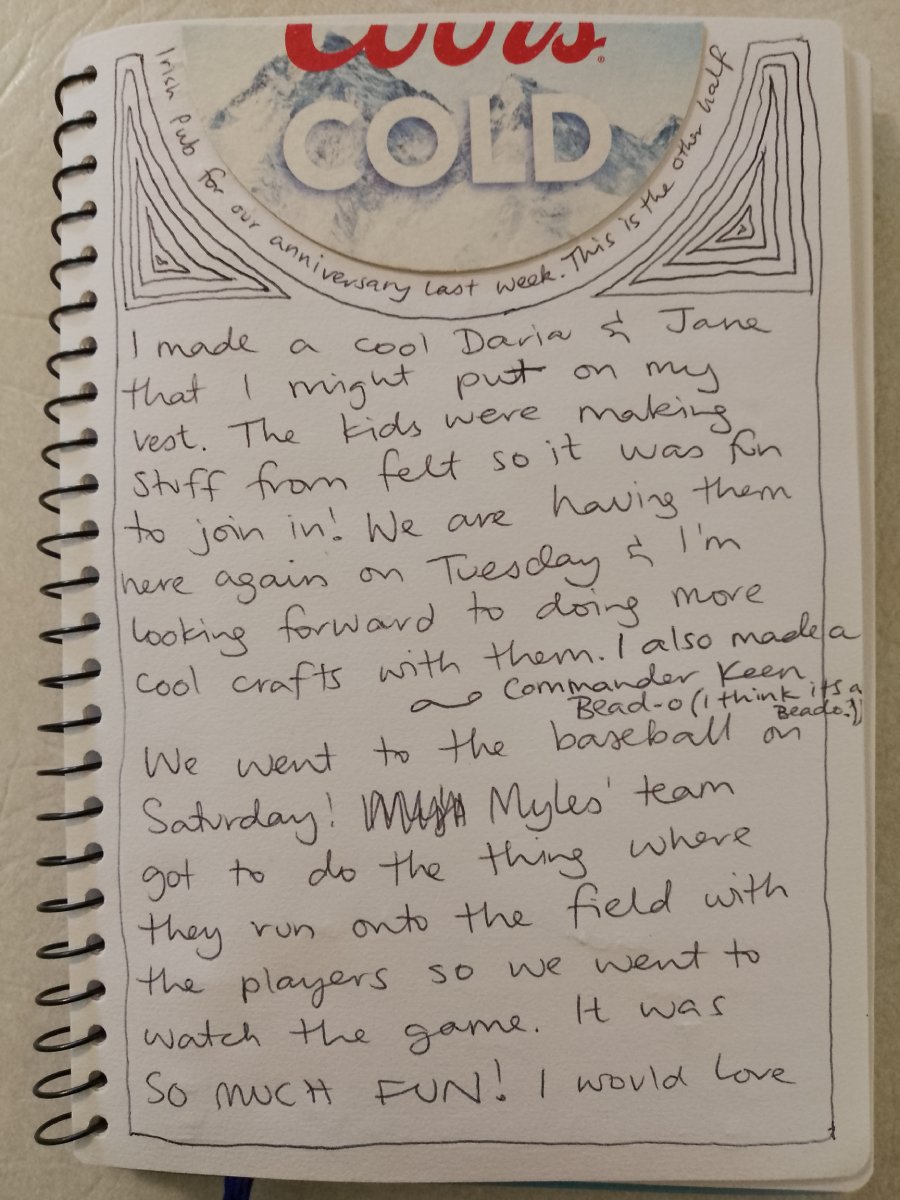 Coors
COLD
Irish Pub for our anniversary last week. This is the other half
I made a cool Daria & Jane
that I might put on my
vest. The kids were making
stuff from felt so it was fun
to join in! We are having them
here again on Tuesday & I'm
looking forward to doing more
cool crafts with them. I also made a
Commander Keen
Bead-o (I think its a
Beado?)
We went to the baseball on
Saturday! Myles' team
got to do the thing where
they run onto the field with
the players so we went to
watch the game. It was
SO MUCH FUN! I would love